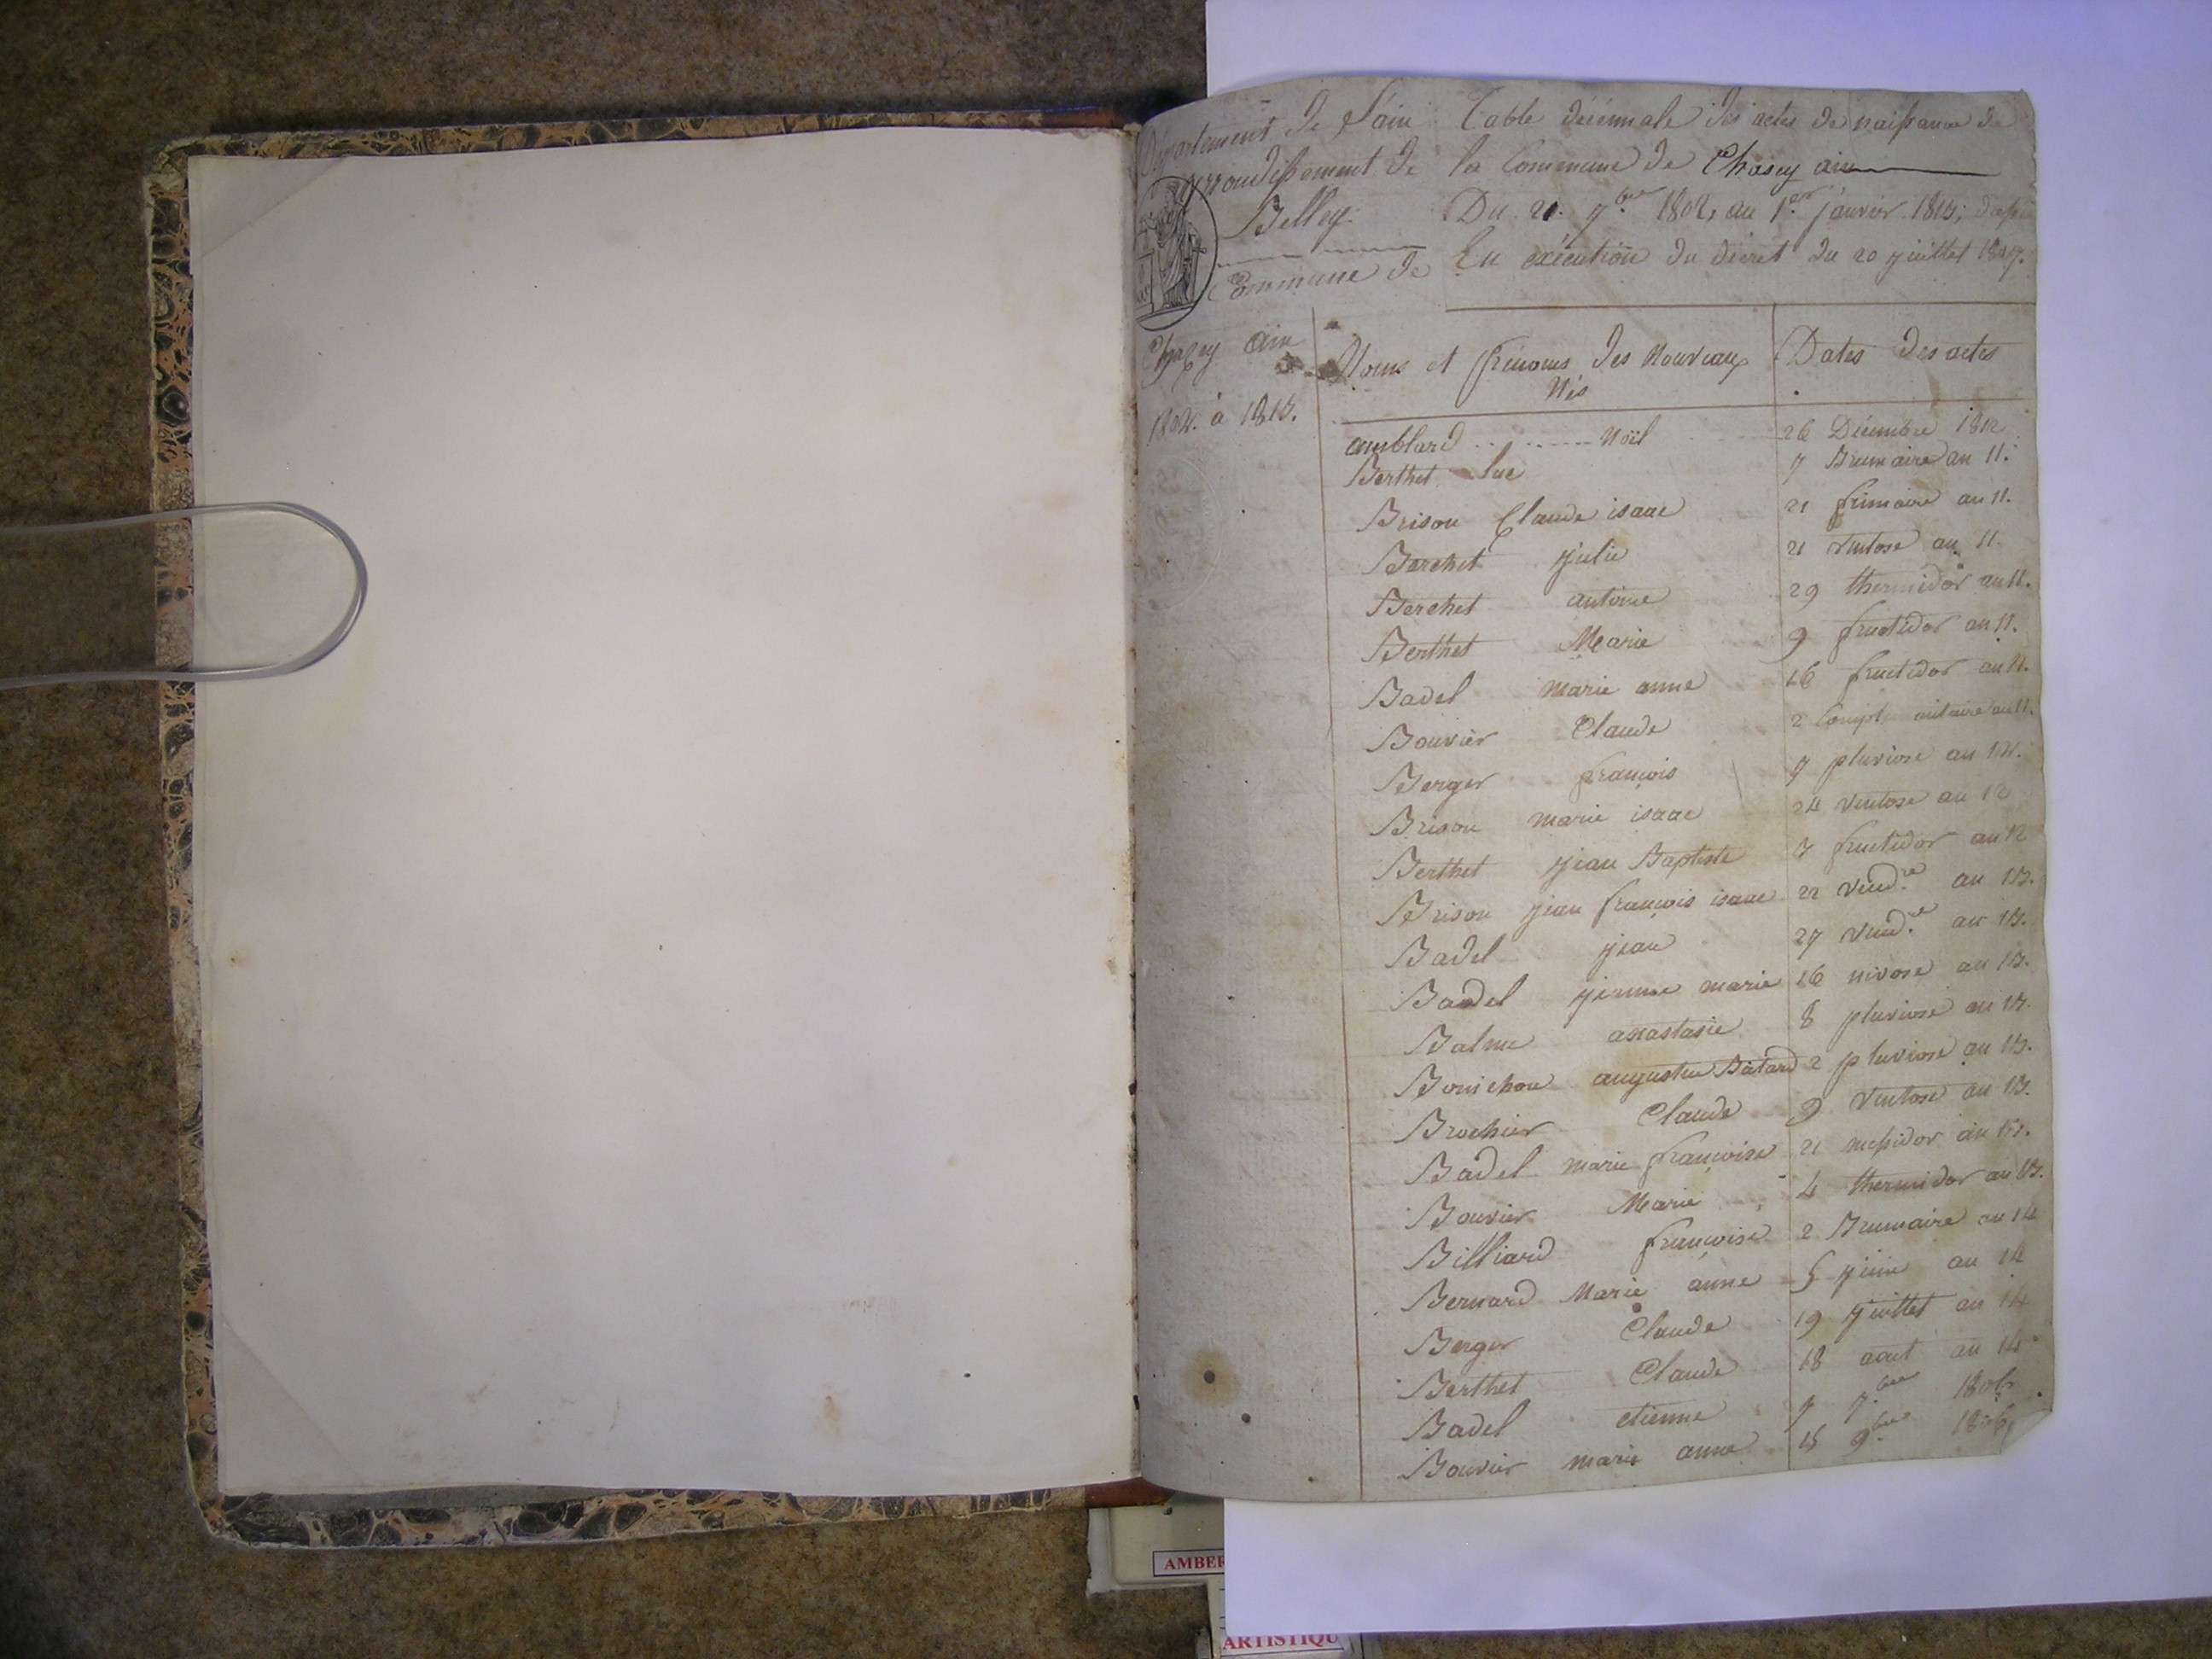 Département de l'ain
arrondissement de
Belley
Commune de
Chazey ain
1802. à 1813.
Table décennale des actes de naissance de
la Commune de Chasey ain
Du 21. 7.bre 1802, au 1.er janvier 1813;
En exécution du décret du 20 juillet 1807.
Noms et prénoms des nouveaux Dates des actes
Nés
amblard Noël 26 Décembre 1812
Berthet Luc 7 Brumaire an 11.
Brison Claude isaac 21 frimaire an 11.
Berchet julie 21 ventose an 11.
Berchet antoine 29 thermidor an 11.
Berthet Marie 9 fructidor an 11.
Badel marie anne 16 fructidor an 11.
Bouvier Claude 2 an 11.
Berger françois 7 pluviose an 12.
Brison marie isaac 24 ventose an 12
Berthet jean Baptiste 7 fructidor an 12
Brison jean françois isaac 22 vend.re an 13.
Badel jean 27 vend.re an 13.
Badel jeanne marie 16 nivose an 13.
Balme anastasie 8 pluviose an 13.
Bonichon augustin Bâtard 2 pluviose an 13.
Brochier Claude 9 ventose an 13.
Badel marie françoise 21 messidor an 13.
Bouvier Marie 4 thermidor an 13.
Billiard françoise 2 Brumaire an 14
Bernard Marie anne 5 juin an 14
Berger Claude 19 juillet an 14
Berthet Claude 18 aout an 14
Badel etienne 7 7.bre 1806
Bouvier marie anne 15 9.bre 1806
AMBER
ARTISTIQU